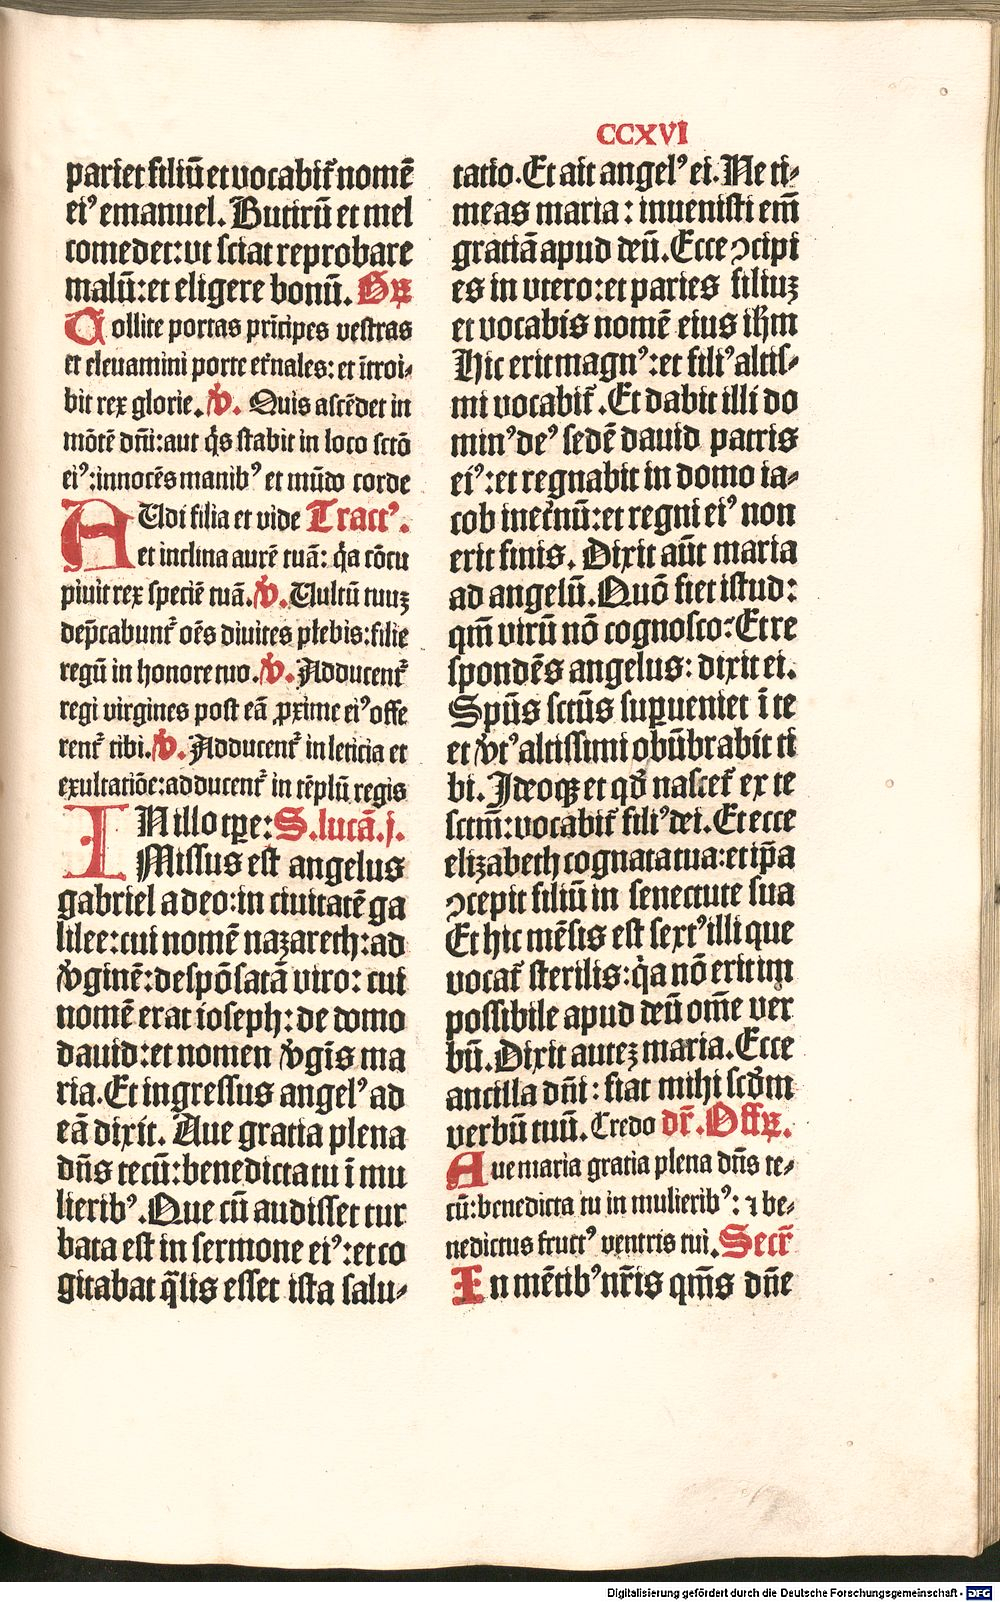 CCXVI
pariet filiū et vocabit᷑ nomē
ei⁹ emanuel. Butirū et mel
comedet: ut sciat reprobare
malū: et eligere bonū. Gꝶ
Tollite portas prīcipes vestras
et eleuamini porte et᷑nales: et ītroi-
bit rex glorie. ꝟ. Quis ascēdet in
mōtē dn̄i: aut q̇s stabit in loco sctō
ei⁹: innocēs manib⁹ et mūdo corde
AUdi filia et vide Tract⁹.
et inclina aurē tuā: q̇a cōcu
piuit rex speciē tuā. ꝟ. Uultū tuuȝ
dep̄cabunt᷑ oēs diuites plebis: filie
regū in honore tuo. ꝟ. Adducent᷑
regi virgines post eā ꝓxime ei⁹ offe
rent᷑ tibi. ꝟ. Adducent᷑ in leticia et
exultatiōe: adducent᷑ in tēplū regis
IN illo tꝑe: S. lucā. j.
Missus est angelus
gabriel a deo: in ciuitatē ga
lilee: cui nomē nazareth: ad
ꝟginē: despōsatā viro: cui
nomē erat ioseph: de domo
dauid: et nomen ꝟgīs ma
ria. Et ingressus angel⁹ ad
eā dixit. Aue gratia plena
dn̄s tecū: benedicta tu ī mu
lierib⁹. Que cū audisset tur
bata est in sermone ei⁹: et co
gitabat q̄lis esset ista salu-
tatio. Et ait angel⁹ ei. Ne ti-
meas maria: inuenisti em̄
gratiā apud deū. Ecce ꝯcipi
es in vtero: et paries filiuȝ
et vocabis nomē eius ih̄m
Hic erit magn⁹: et fili⁹ altis-
mi vocabit᷑. Et dabit illi do
min⁹ de⁹ sedē dauid patris
ei⁹: et regnabit in domo ia-
cob inet᷑nū: et regni ei⁹ non
erit finis. Dixit aūt maria
ad angelū. Quō fiet istud:
qm̄ virū nō cognosco: Et re
spondēs angelus: dixit ei.
Spūs sctūs supꝟueniet ī te
et ꝟt⁹ altissimi obūbrabit ti
bi. Ideoqꝫ et qđ nascet᷑ ex te
sctm̄: vocabit᷑ fili⁹ dei. Et ecce
elizabeth cognata tua: et ip̄a
ꝯcepit filiū in senectute sua
Et hic mēsis est sext⁹ illi que
vocat᷑ sterilis: q̇a nō erit im
possibile apud deū om̄e ver
bū. Dixit auteȝ maria. Ecce
ancilla dn̄i: fiat mihi scđm
verbū tuū. Credo dr̄. Offꝶ.
Aue maria gratia plena dn̄s te-
cū: benedicta tu in mulierib⁹: ⁊ be-
nedictus fruct⁹ ventris tui. Secr̄
In mētib⁹ nr̄is qm̄s dn̄e
Digitalisierung gefördert durch die Deutsche Forschungsgemeinschaft - DFG